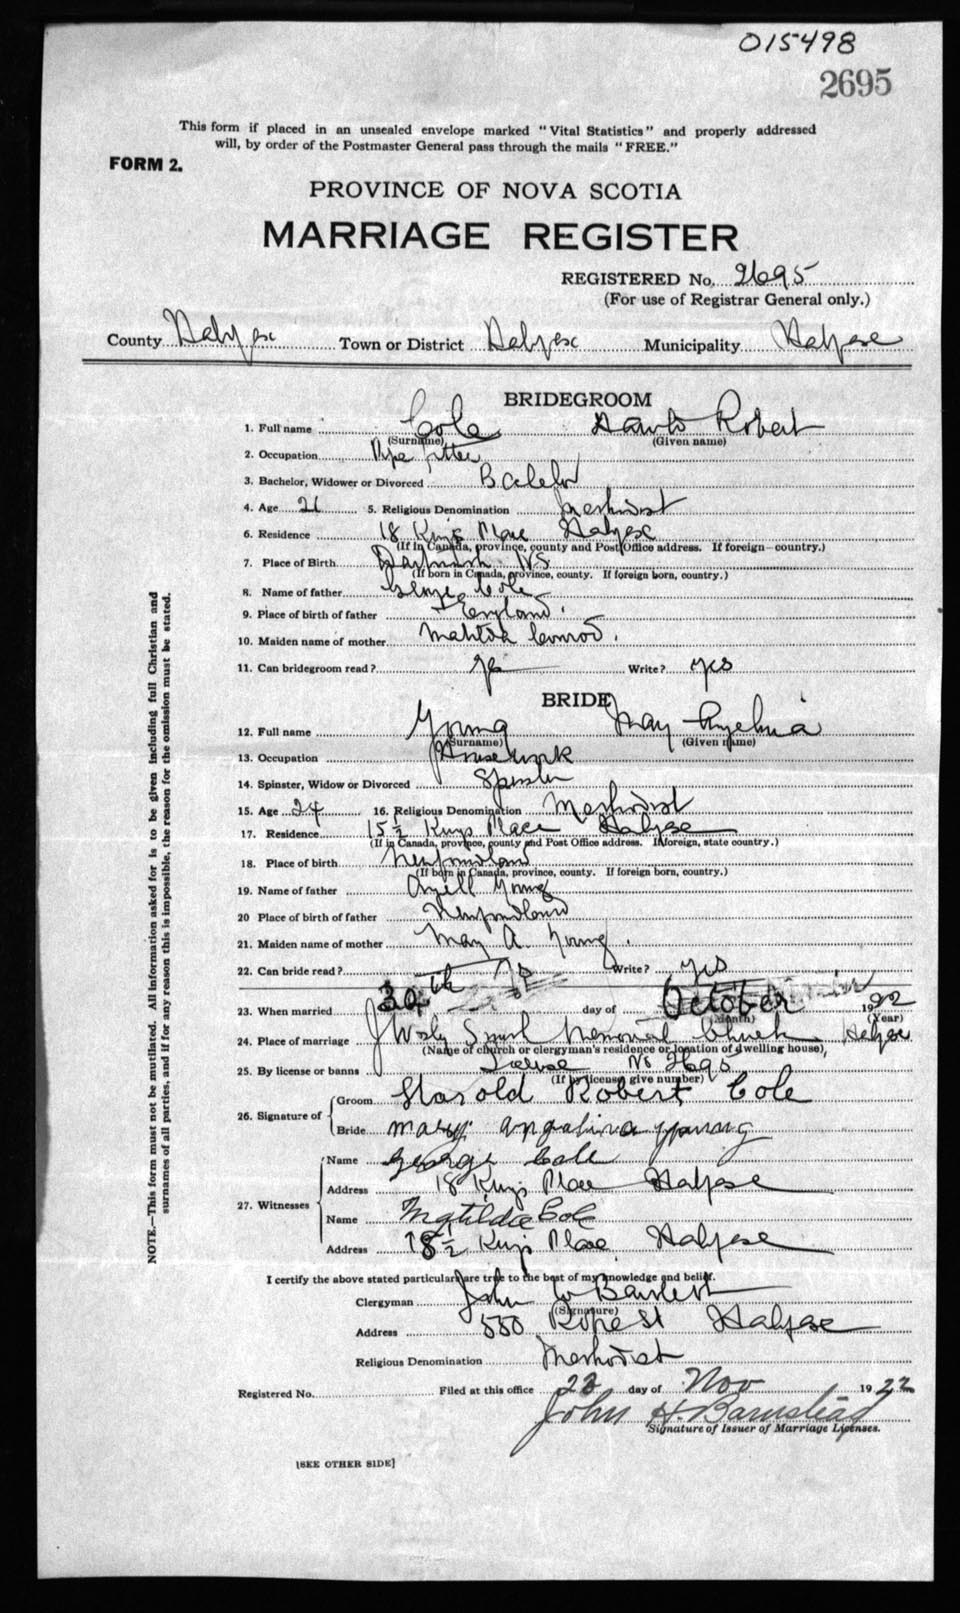 015498
2695
This form if placed in an unsealed envelope marked "Vital Statistics" and properly addressed
will, by order of the Postmaster General pass through the mails "FREE."
FORM 2.
PROVINCE OF NOVA SCOTIA
MARRIAGE REGISTER
REGISTERED No. 2695
(For use of Registrar General only.)
County Halifax Town or District Halifax Municipality Halifax
BRIDEGROOM
1. Full name Cole Robert
(Surname) (Given name)
2. Occupation Pipe fitter
3. Bachelor, Widower or Divorced Bachelor
4. Age 21 5. Religious Denomination Methodist
6. Residence 18 Kings Place Halifax
(If in Canada, province, county and Post Office address. If foreign—country.)
7. Place of Birth Dartmouth NS
(If born in Canada, province, county. If foreign born, country.)
8. Name of father George Cole
9. Place of birth of father England.
10. Maiden name of mother Matilda Conrod.
11. Can bridegroom read? yes Write? yes
BRIDE
12. Full name Young May Angelina
(Surname) (Given name)
13. Occupation Housework
14. Spinster, Widow or Divorced Spinster
15. Age 24 16. Religious Denomination Methodist
17. Residence 15½ Kings Place Halifax
(If in Canada, province, county and Post Office address. If foreign, state country.)
18. Place of birth Newfoundland
(If born in Canada, province, county. If foreign born, country.)
19. Name of father Young
20 Place of birth of father Newfoundland
21. Maiden name of mother May A Young.
22. Can bride read? yes Write? yes
23. When married 30th day of October 1922
(Month) (Year)
24. Place of marriage Memorial Church Halifax
(Name of church or clergyman's residence or location of dwelling house),
25. By license or banns License No 2695
(If by license give number)
26. Signature of
Groom Harold Robert Cole
Bride Mary Angalina young
27. Witnesses
Name George Cole
Address 18 Kings Place Halifax
Name Matilda Cole
Address 18½ Kings Place, Halifax
I certify the above stated particulars are true to the best of my knowledge and belief.
Clergyman John W Bartlett
(Signature)
Address 550 Robie St Halifax
Religious Denomination Methodist
Registered No. Filed at this office 23 day of Nov 1922
John H. Barnstead
Signature of Issuer of Marriage Licenses.
[SEE OTHER SIDE]
NOTE.—This form must not be mutilated. All information asked for is to be given including full Christian and
surnames of all parties, and if for any reason this is impossible, the reason for the omission must be stated.